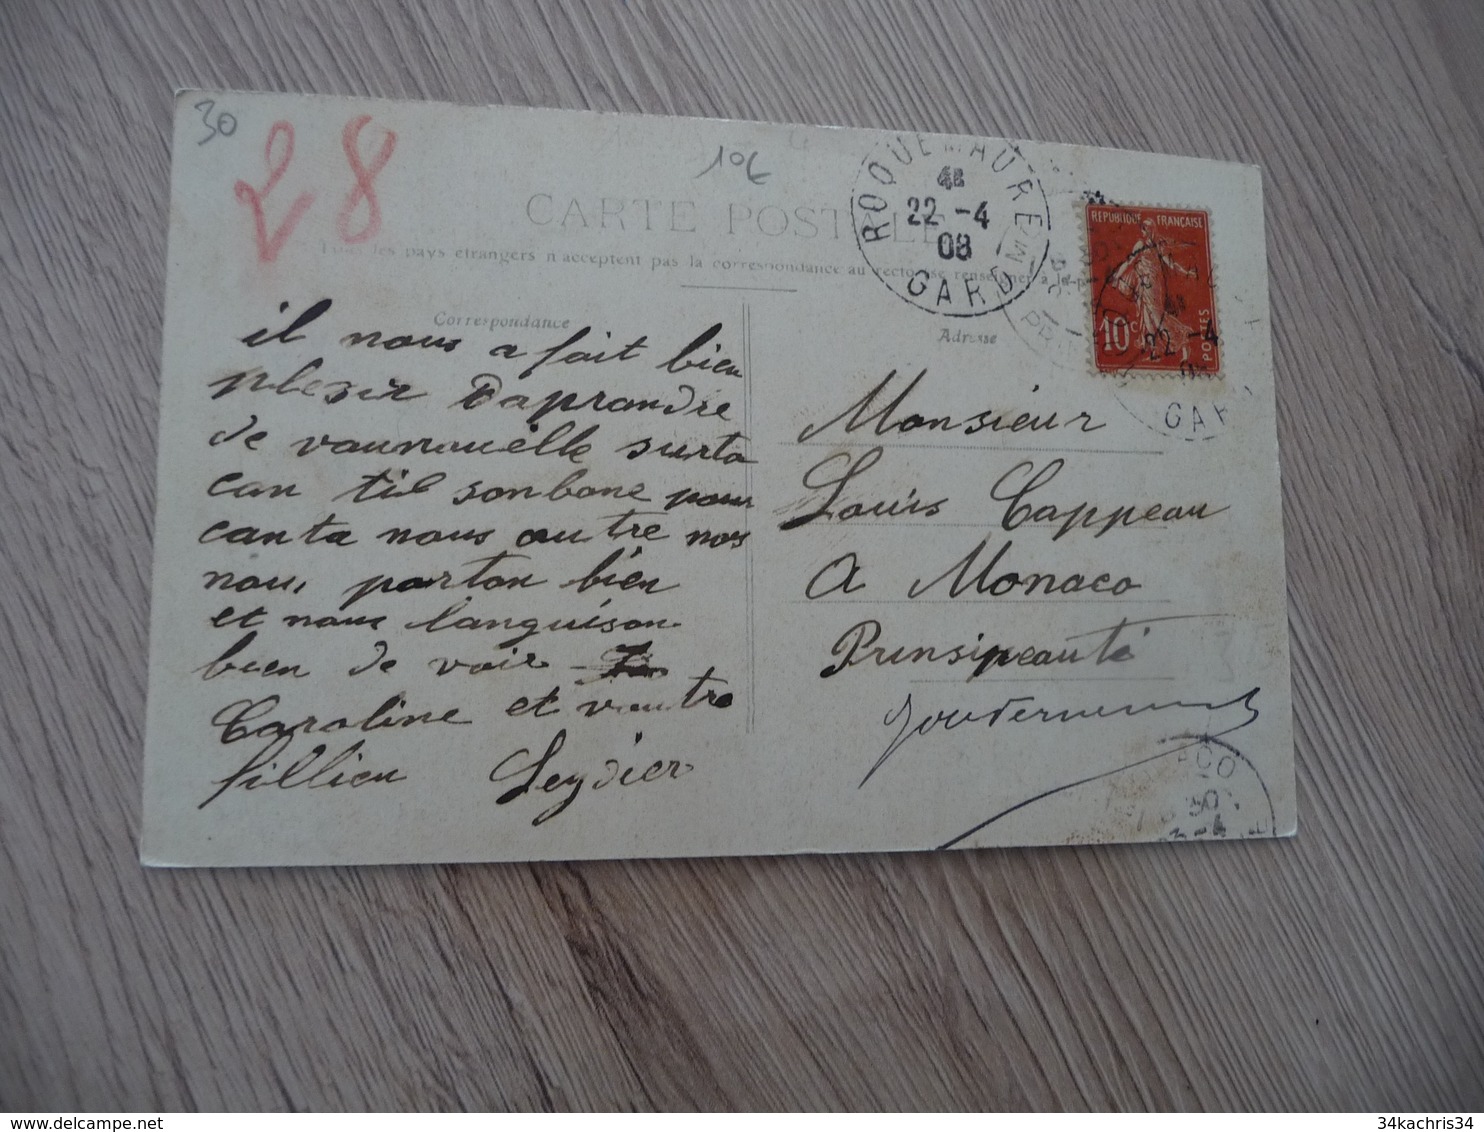 30
28
10€
CARTE POSTALE
Tous les pays étrangers n'acceptent pas la correspondance au recto se renseigner à la
ROQUEMAURE
4E
22 -4
08
GARD
REPUBLIQUE FRANÇAISE
10c
POSTES
22 -4
GARD
Correspondance
il nous a fait bien
plezir Daprandre
de vaunouèlle surto
can til sonbone pour
canta nous autre nos
nous porton bien
et nous languison
bien de voir
Caroline et vautre
fillieu Leydier
Adresse
Monsieur
Louis Cappeau
a Monaco
Prinsipeauté
Gouvernement
34kachris34